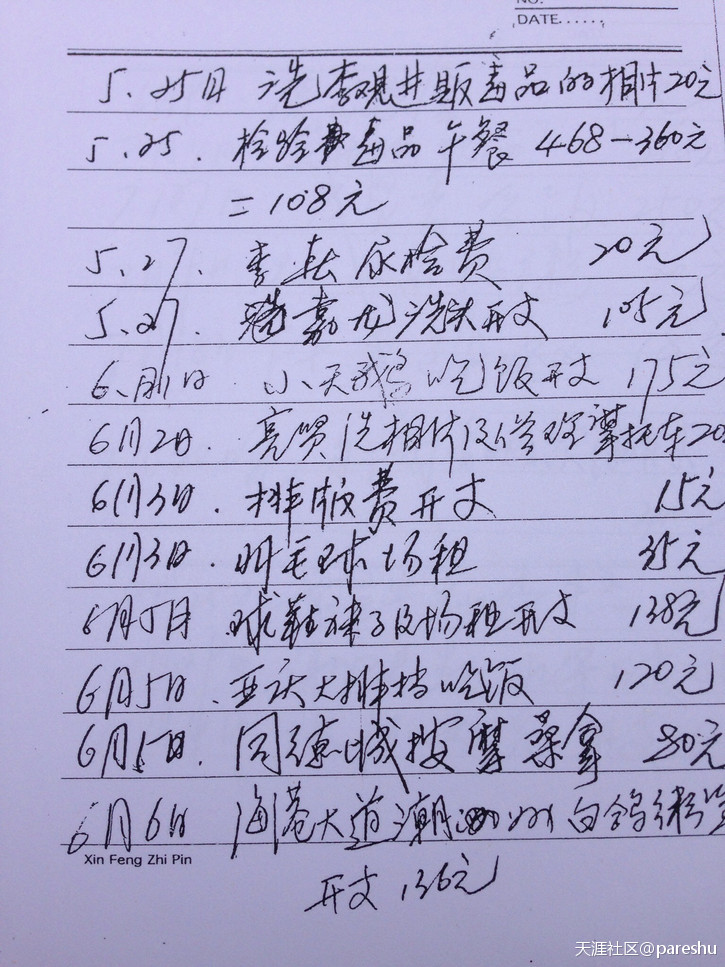 NO.
DATE......
5.25日 洗李观进贩毒品的相片20元
5.25. 检验费毒品午餐 468-360元
=108元
5.27. 李 尿检费 20元
5.27. 嘉龙洗头开支 105元
6.月1日 小天鹅吃饭开支 175元
6月2日. 亮贤洗相片及 摩托车20
6月3日. 排版费开支 15元
6月3日. 羽毛球场租 35元
6月5日 球鞋袜子及场租开支 138元
6月5日. 亚庆大排挡吃饭 120元
6月5日. 同德城按摩桑拿 80元
6月6日 海港大道潮 白鸽粥
开支 136元
Xin Feng Zhi Pin
天涯社区@pareshu